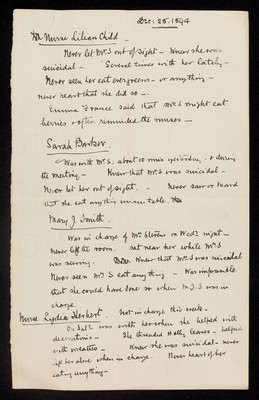 Dec: 28. 1894
Nurse Lilian Child
Never let Mrs S out of sight - Knew she was
suicidal - Several times with her lately -
Never seen her eat evergreens - or anything -
never heard that she did so -
Emma France said that Mrs S might eat
berries & often reminded the nurses -
Sarah Barber.
Was with Mrs S. about 10 mins yesterday, & during
the meeting - Knew that Mrs S was suicidal -
Never let her out of sight. - Never saw or heard
that she eat anything unsuitable.
Mary J. Smith.
Was in charge of Mrs Stevens on Wed: night -
never left the room. sat near her while Mrs S
was sewing. Knew that Mrs S was suicidal
Never seen Mrs S eat anything - Was impossible
that she could have done so when M.J.S was in
charge.
Nurse Lydia Herbert. Not in charge this week -
On Sat: was with her when she helped with
decorations - She threaded Holly leaves - helped
with wreaths - Knew she was suicidal - never
left her alone when in charge. Never heard of her
eating anything -